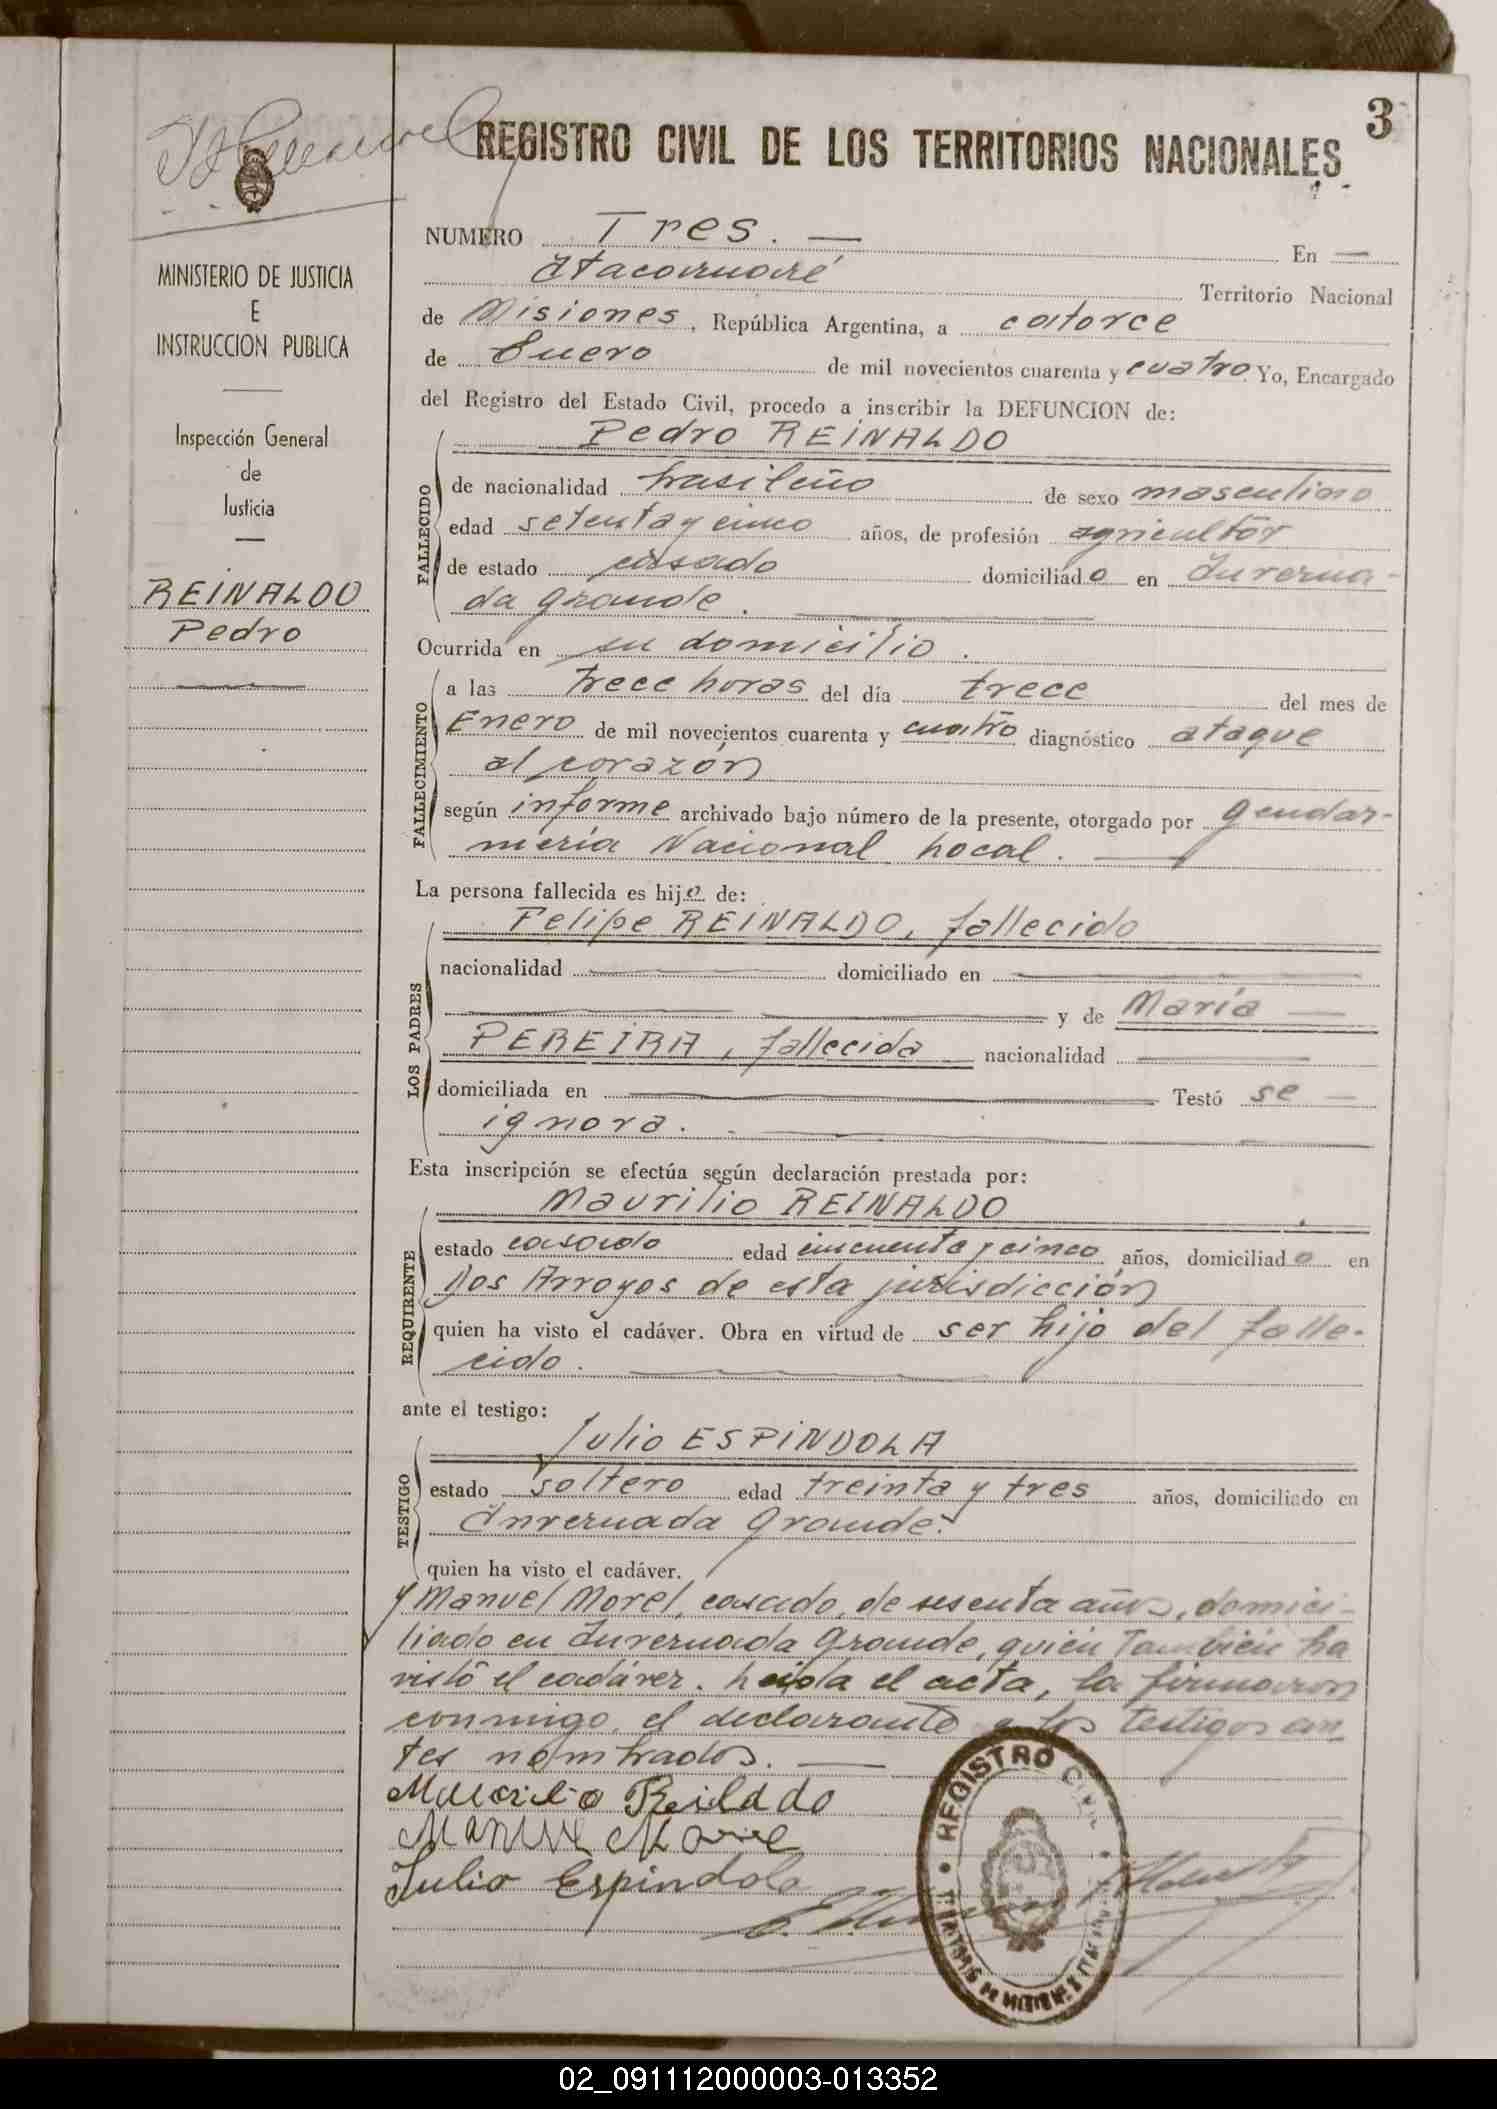 3
REGISTRO CIVIL DE LOS TERRITORIOS NACIONALES
MINISTERIO DE JUSTICIA
E
INSTRUCCION PUBLICA
Inspección General
de
Justicia
REINALDO
Pedro
NUMERO Tres. — En —
Itacaruaré Territorio Nacional
de Misiones, República Argentina, a catorce
de Enero de mil novecientos cuarenta y cuatro Yo, Encargado
del Registro del Estado Civil, procedo a inscribir la DEFUNCION de:
Pedro REINALDO
FALLECIDO
de nacionalidad brasileño de sexo masculino
edad setenta y cinco años, de profesión agricultor
de estado casado domiciliado en Inverna-
da Grande.
Ocurrida en su domicilio.
FALLECIMIENTO
a las trece horas del día trece del mes de
Enero de mil novecientos cuarenta y cuatro diagnóstico ataque
al corazón
según informe archivado bajo número de la presente, otorgado por Gendar-
mería Nacional Local. —
La persona fallecida es hijo de:
Felipe REINALDO, fallecido
LOS PADRES
nacionalidad — domiciliado en —
— y de María —
PEREIRA, fallecida nacionalidad —
domiciliada en — Testó se —
ignora. —
Esta inscripción se efectúa según declaración prestada por:
Maurilio REINALDO
REQUIRENTE
estado casado edad cincuenta y cinco años, domiciliado en
Dos Arroyos de esta jurisdicción
quien ha visto el cadáver. Obra en virtud de ser hijo del falle-
cido.
ante el testigo:
Julio ESPINDOLA
TESTIGO
estado soltero edad treinta y tres años, domiciliado en
Invernada Grande.
quien ha visto el cadáver.
y Manuel Morel, casado, de sesenta años, domici-
liado en Invernada Grande, quien también ha
visto el cadáver. Leída el acta, la firmaron
conmigo, el declarante y los testigos an
tes nombrados. —
Maurilio Reilddo
Manuel Morel
Julio Espindola
REGISTRO CIVIL
02_091112000003-013352